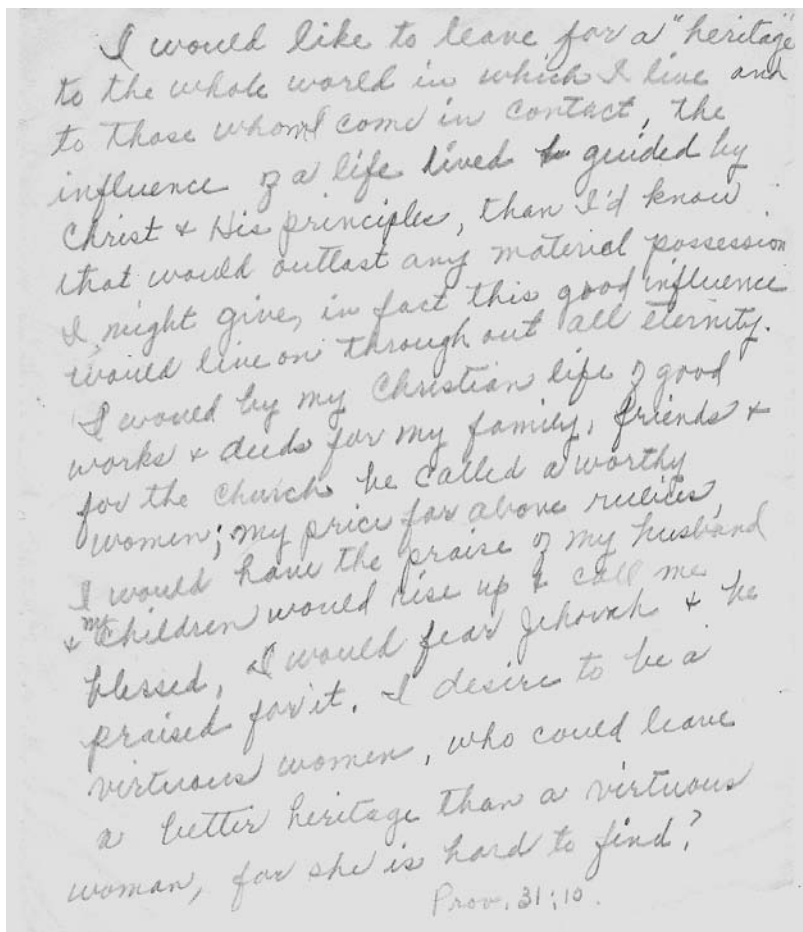 I would like to leave for a "heritage"
to the whole world in which I live and
to those whom I come in contact, the
influence of a life lived guided by
Christ & His principles, than I'd know
that would outlast any material possession
I might give, in fact this good influence
would live on through out all eternity.
I would by my Christian life of good
works & deeds for my family, friends &
for the church be called a worthy
women; my price far above rubies,
I would have the praise of my husband
& my children would rise up & call me
blessed, I would fear Jehovah & be
praised for it. I desire to be a
virtuous women, who could leave
a better heritage than a virtuous
woman, for she is hard to find?
Prov. 31:10.